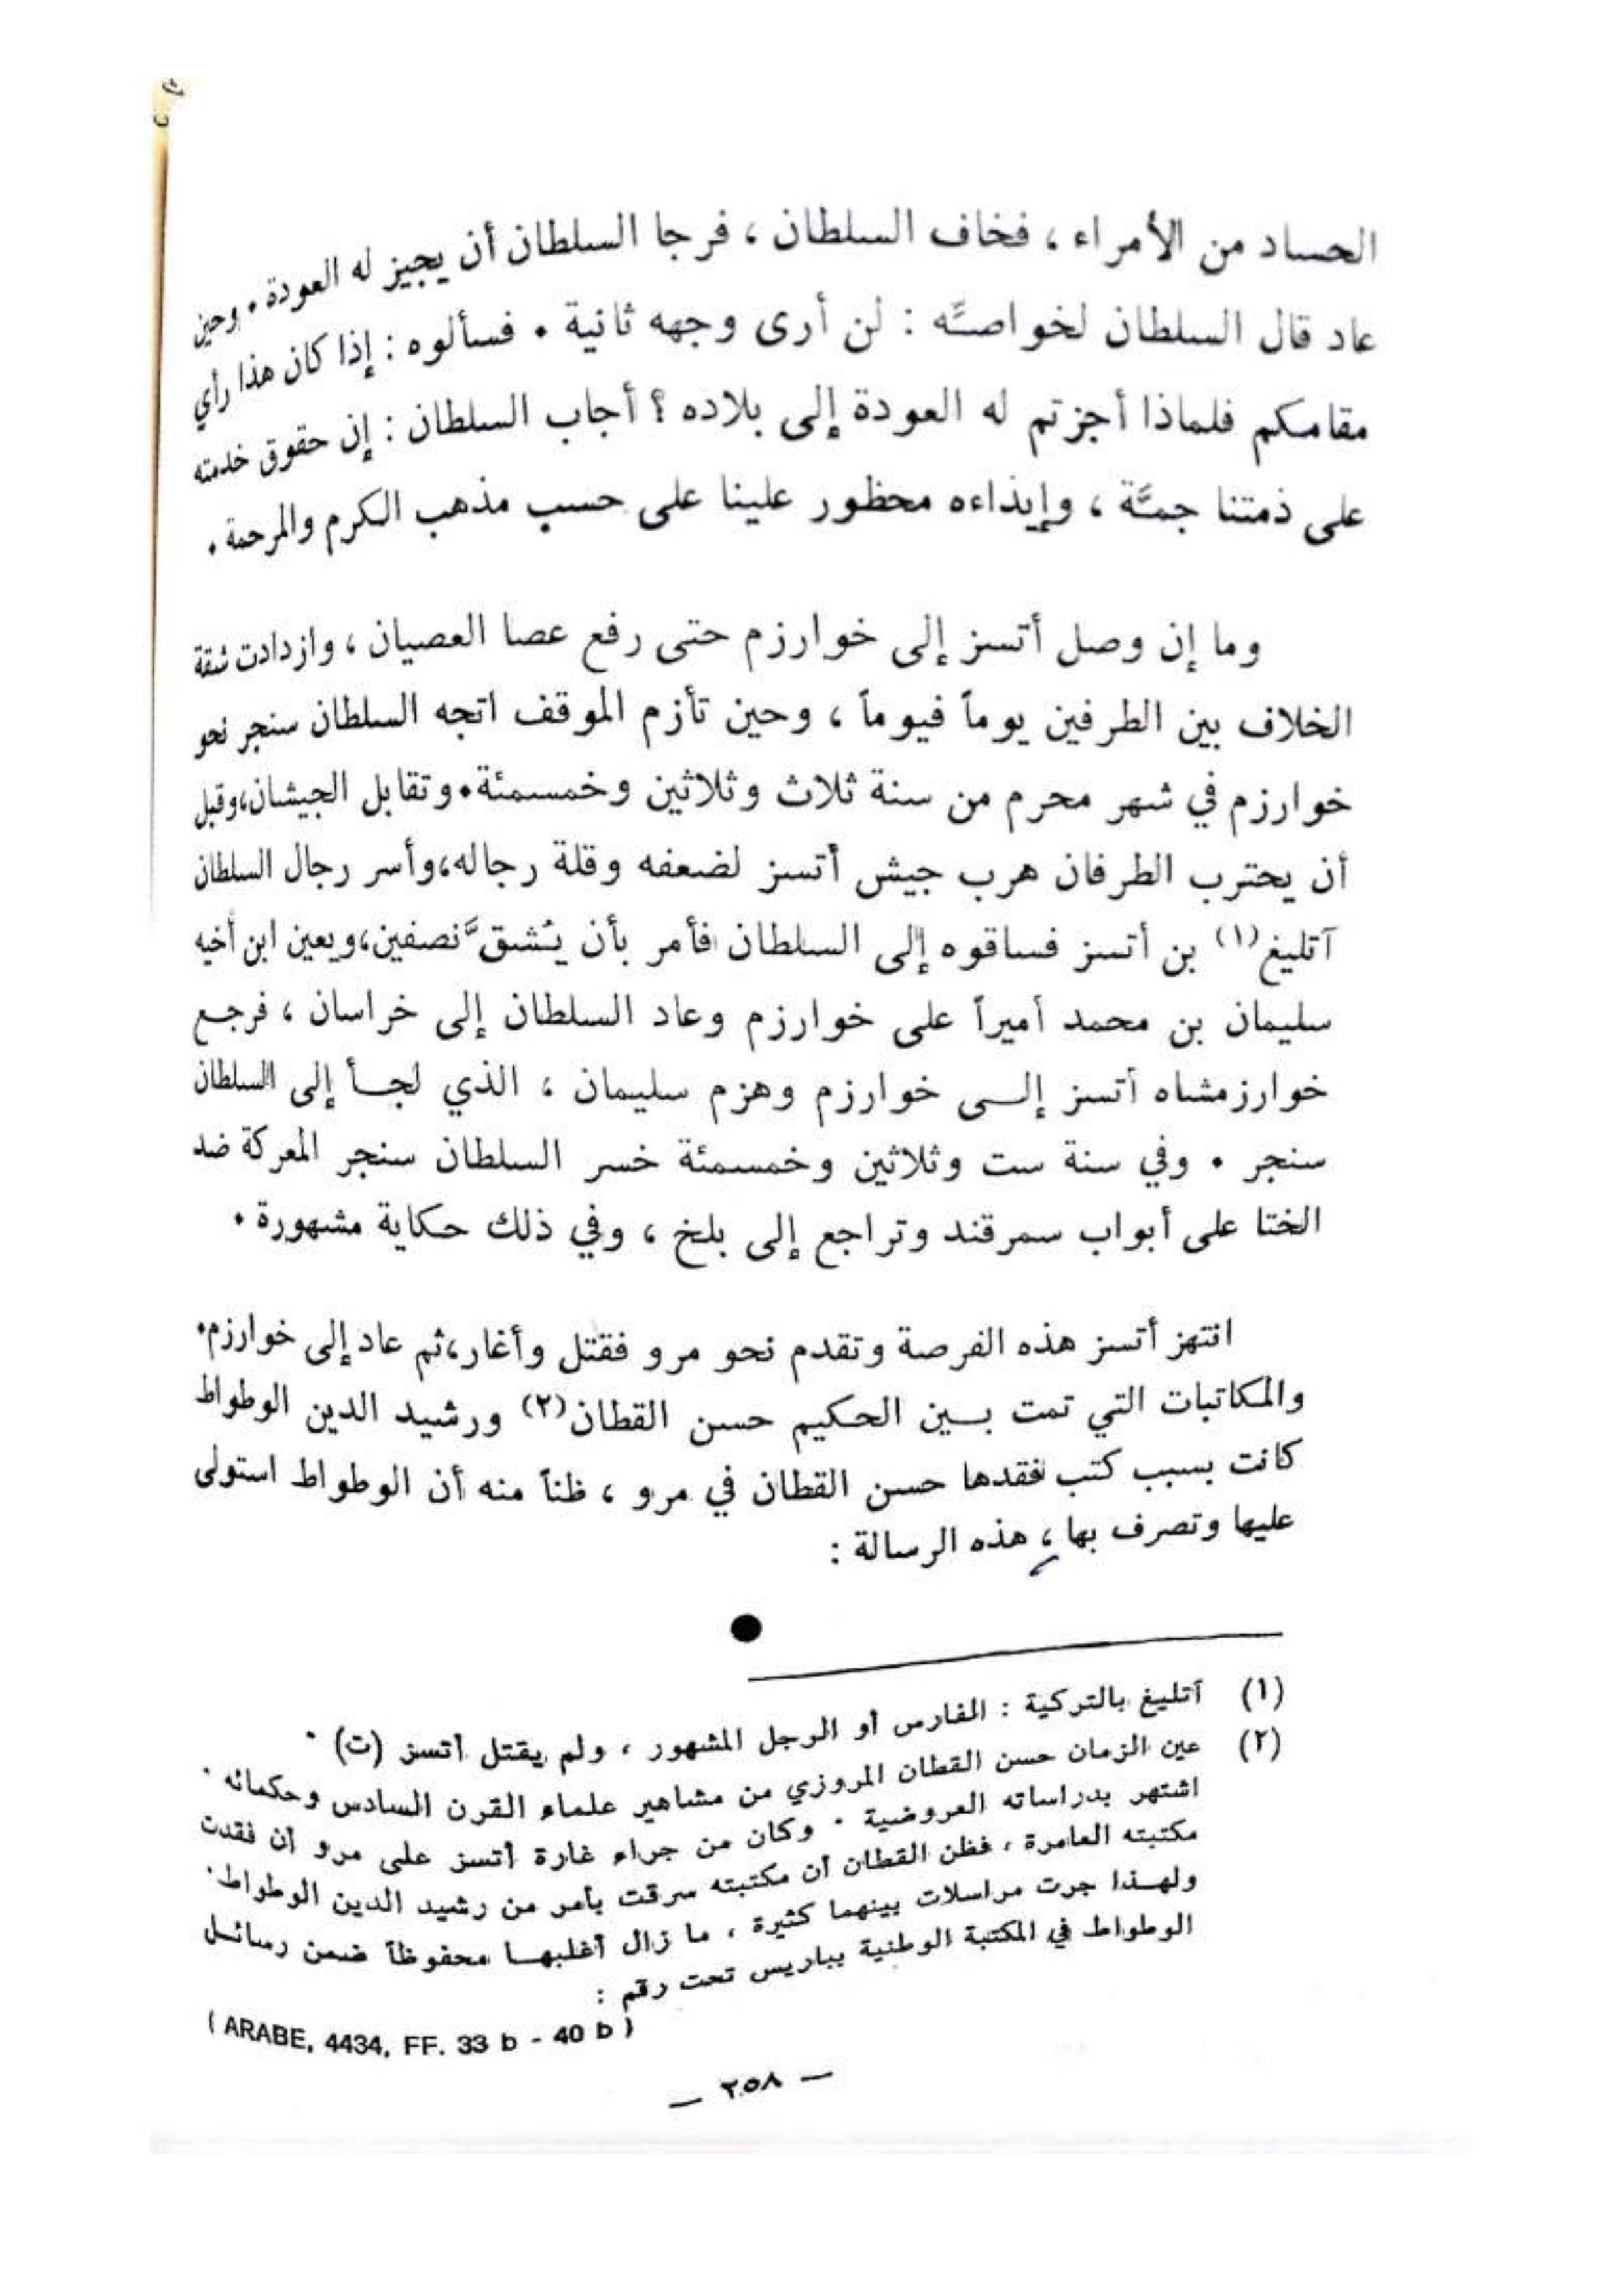 الحساد من الأمراء ، فخاف السلطان ، فرجا السلطان أن يجيز له العودة . وحين
عاد قال السلطان لخواصّه : لن أرى وجهه ثانية . فسألوه : إذا كان هذا رأي
مقامكم فلماذا أجزتم له العودة إلى بلاده ؟ أجاب السلطان : إن حقوق خدمته
على ذمتنا جمّة ، وإيذاءه محظور علينا على حسب مذهب الكرم والمرحمة .
وما إن وصل أتسز إلى خوارزم حتى رفع عصا العصيان ، وازدادت شقة
الخلاف بين الطرفين يوماً فيوماً ، وحين تأزم الموقف اتجه السلطان سنجر نحو
خوارزم في شهر محرم من سنة ثلاث وثلاثين وخمسمئة . وتقابل الجيشان ، وقبل
أن يحترب الطرفان هرب جيش أتسز لضعفه وقلة رجاله ، وأسر رجال السلطان
آتليغ (١) بن أتسز فساقوه إلى السلطان فأمر بأن يُشقَّ نصفين ، ويعين ابن أخيه
سليمان بن محمد أميراً على خوارزم وعاد السلطان إلى خراسان ، فرجع
خوارزمشاه أتسز إلى خوارزم وهزم سليمان ، الذي لجأ إلى السلطان
سنجر . وفي سنة ست وثلاثين وخمسمئة خسر السلطان سنجر المعركة ضد
الختا على أبواب سمرقند وتراجع إلى بلخ ، وفي ذلك حكاية مشهورة .
انتهز أتسز هذه الفرصة وتقدم نحو مرو فقتل وأغار ، ثم عاد إلى خوارزم .
والمكاتبات التي تمت بين الحكيم حسن القطان (٢) ورشيد الدين الوطواط
كانت بسبب كتب فقدها حسن القطان في مرو ، ظناً منه أن الوطواط استولى
عليها وتصرف بها ، هذه الرسالة :
(١) آتليغ بالتركية : الفارس أو الرجل المشهور ، ولم يقتل أتسز (ت) .
(٢) عين الزمان حسن القطان المروزي من مشاهير علماء القرن السادس وحكمائه .
اشتهر بدراساته العروضية . وكان من جراء غارة أتسز على مرو أن فقدت
مكتبته العامرة ، فظن القطان أن مكتبته سرقت بأمر من رشيد الدين الوطواط .
ولهذا جرت مراسلات بينهما كثيرة ، ما زال أغلبها محفوظاً ضمن رسائل
الوطواط في المكتبة الوطنية بباريس تحت رقم :
( ARABE, 4434, FF. 33 b - 40 b )
— ٢٥٨ —